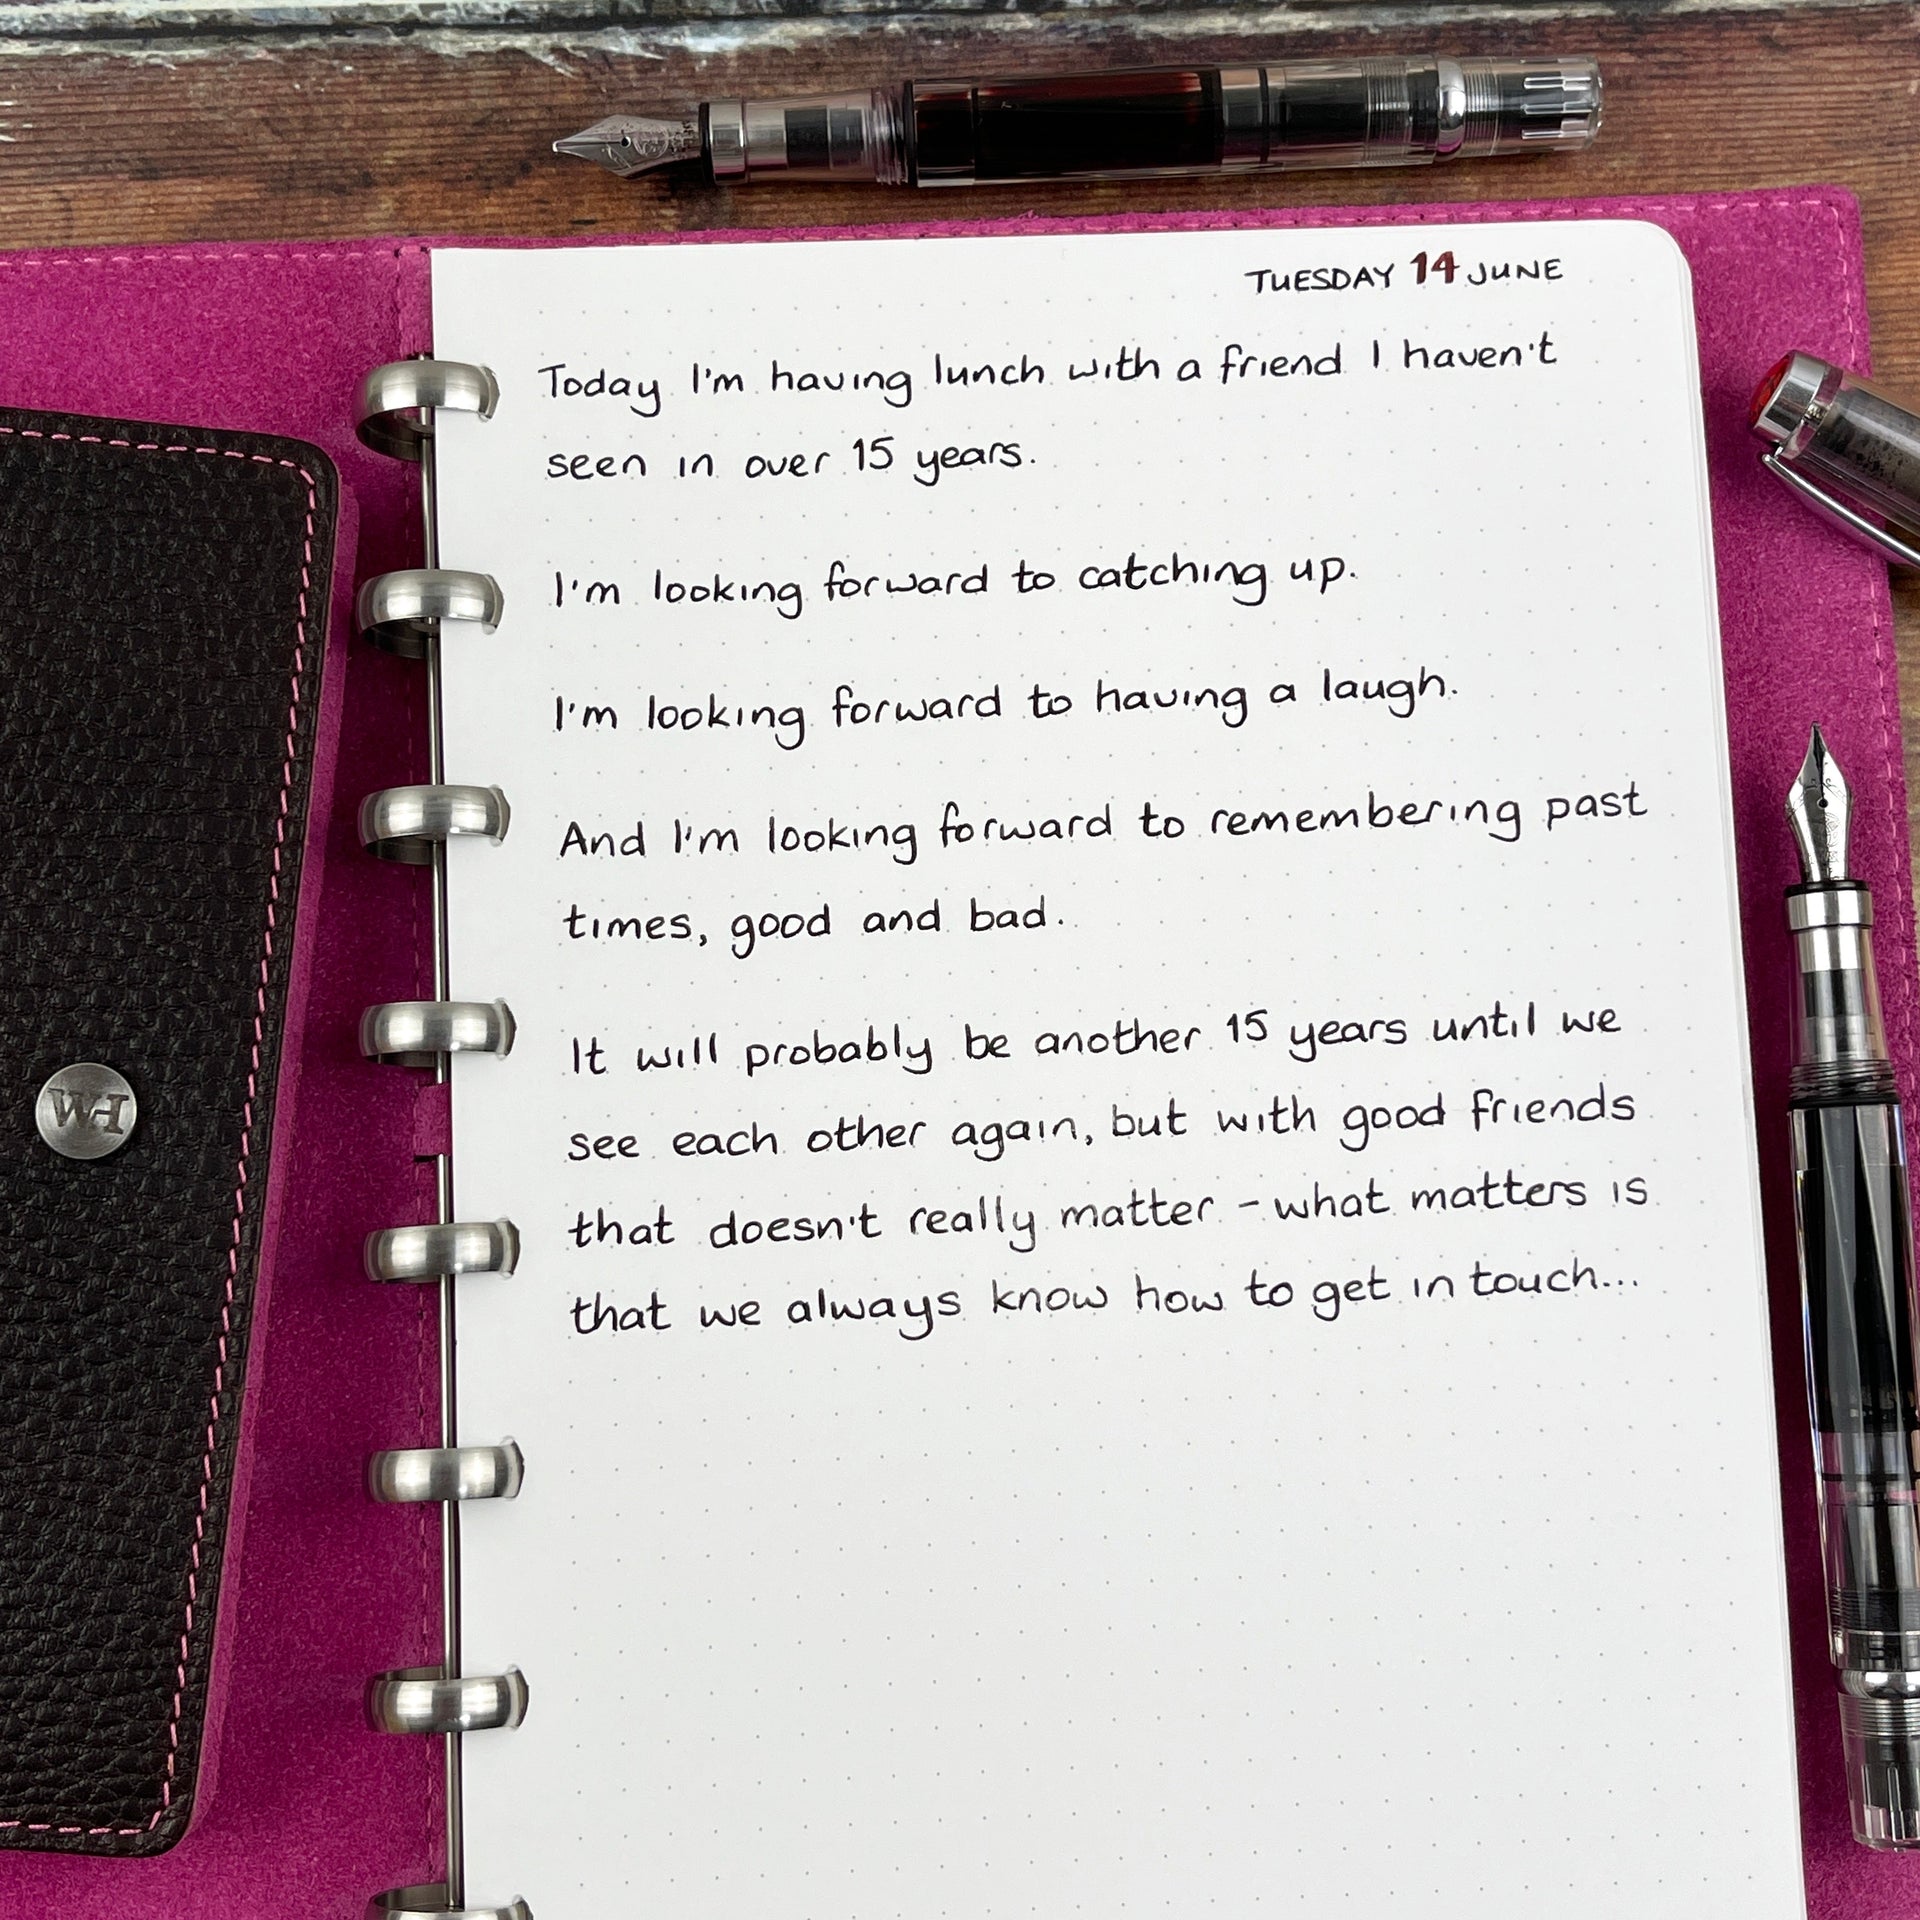 TUESDAY 14 JUNE
Today I'm having lunch with a friend I haven't
seen in over 15 years.
I'm looking forward to catching up.
I'm looking forward to having a laugh.
And I'm looking forward to remembering past
times, good and bad.
It will probably be another 15 years until we
see each other again, but with good friends
that doesn't really matter - what matters is
that we always know how to get in touch...
WH